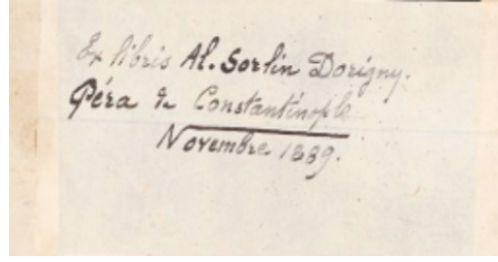 Ex libris Al. Sorlin Dorigny.
Péra de Constantinople
Novembre 1889.